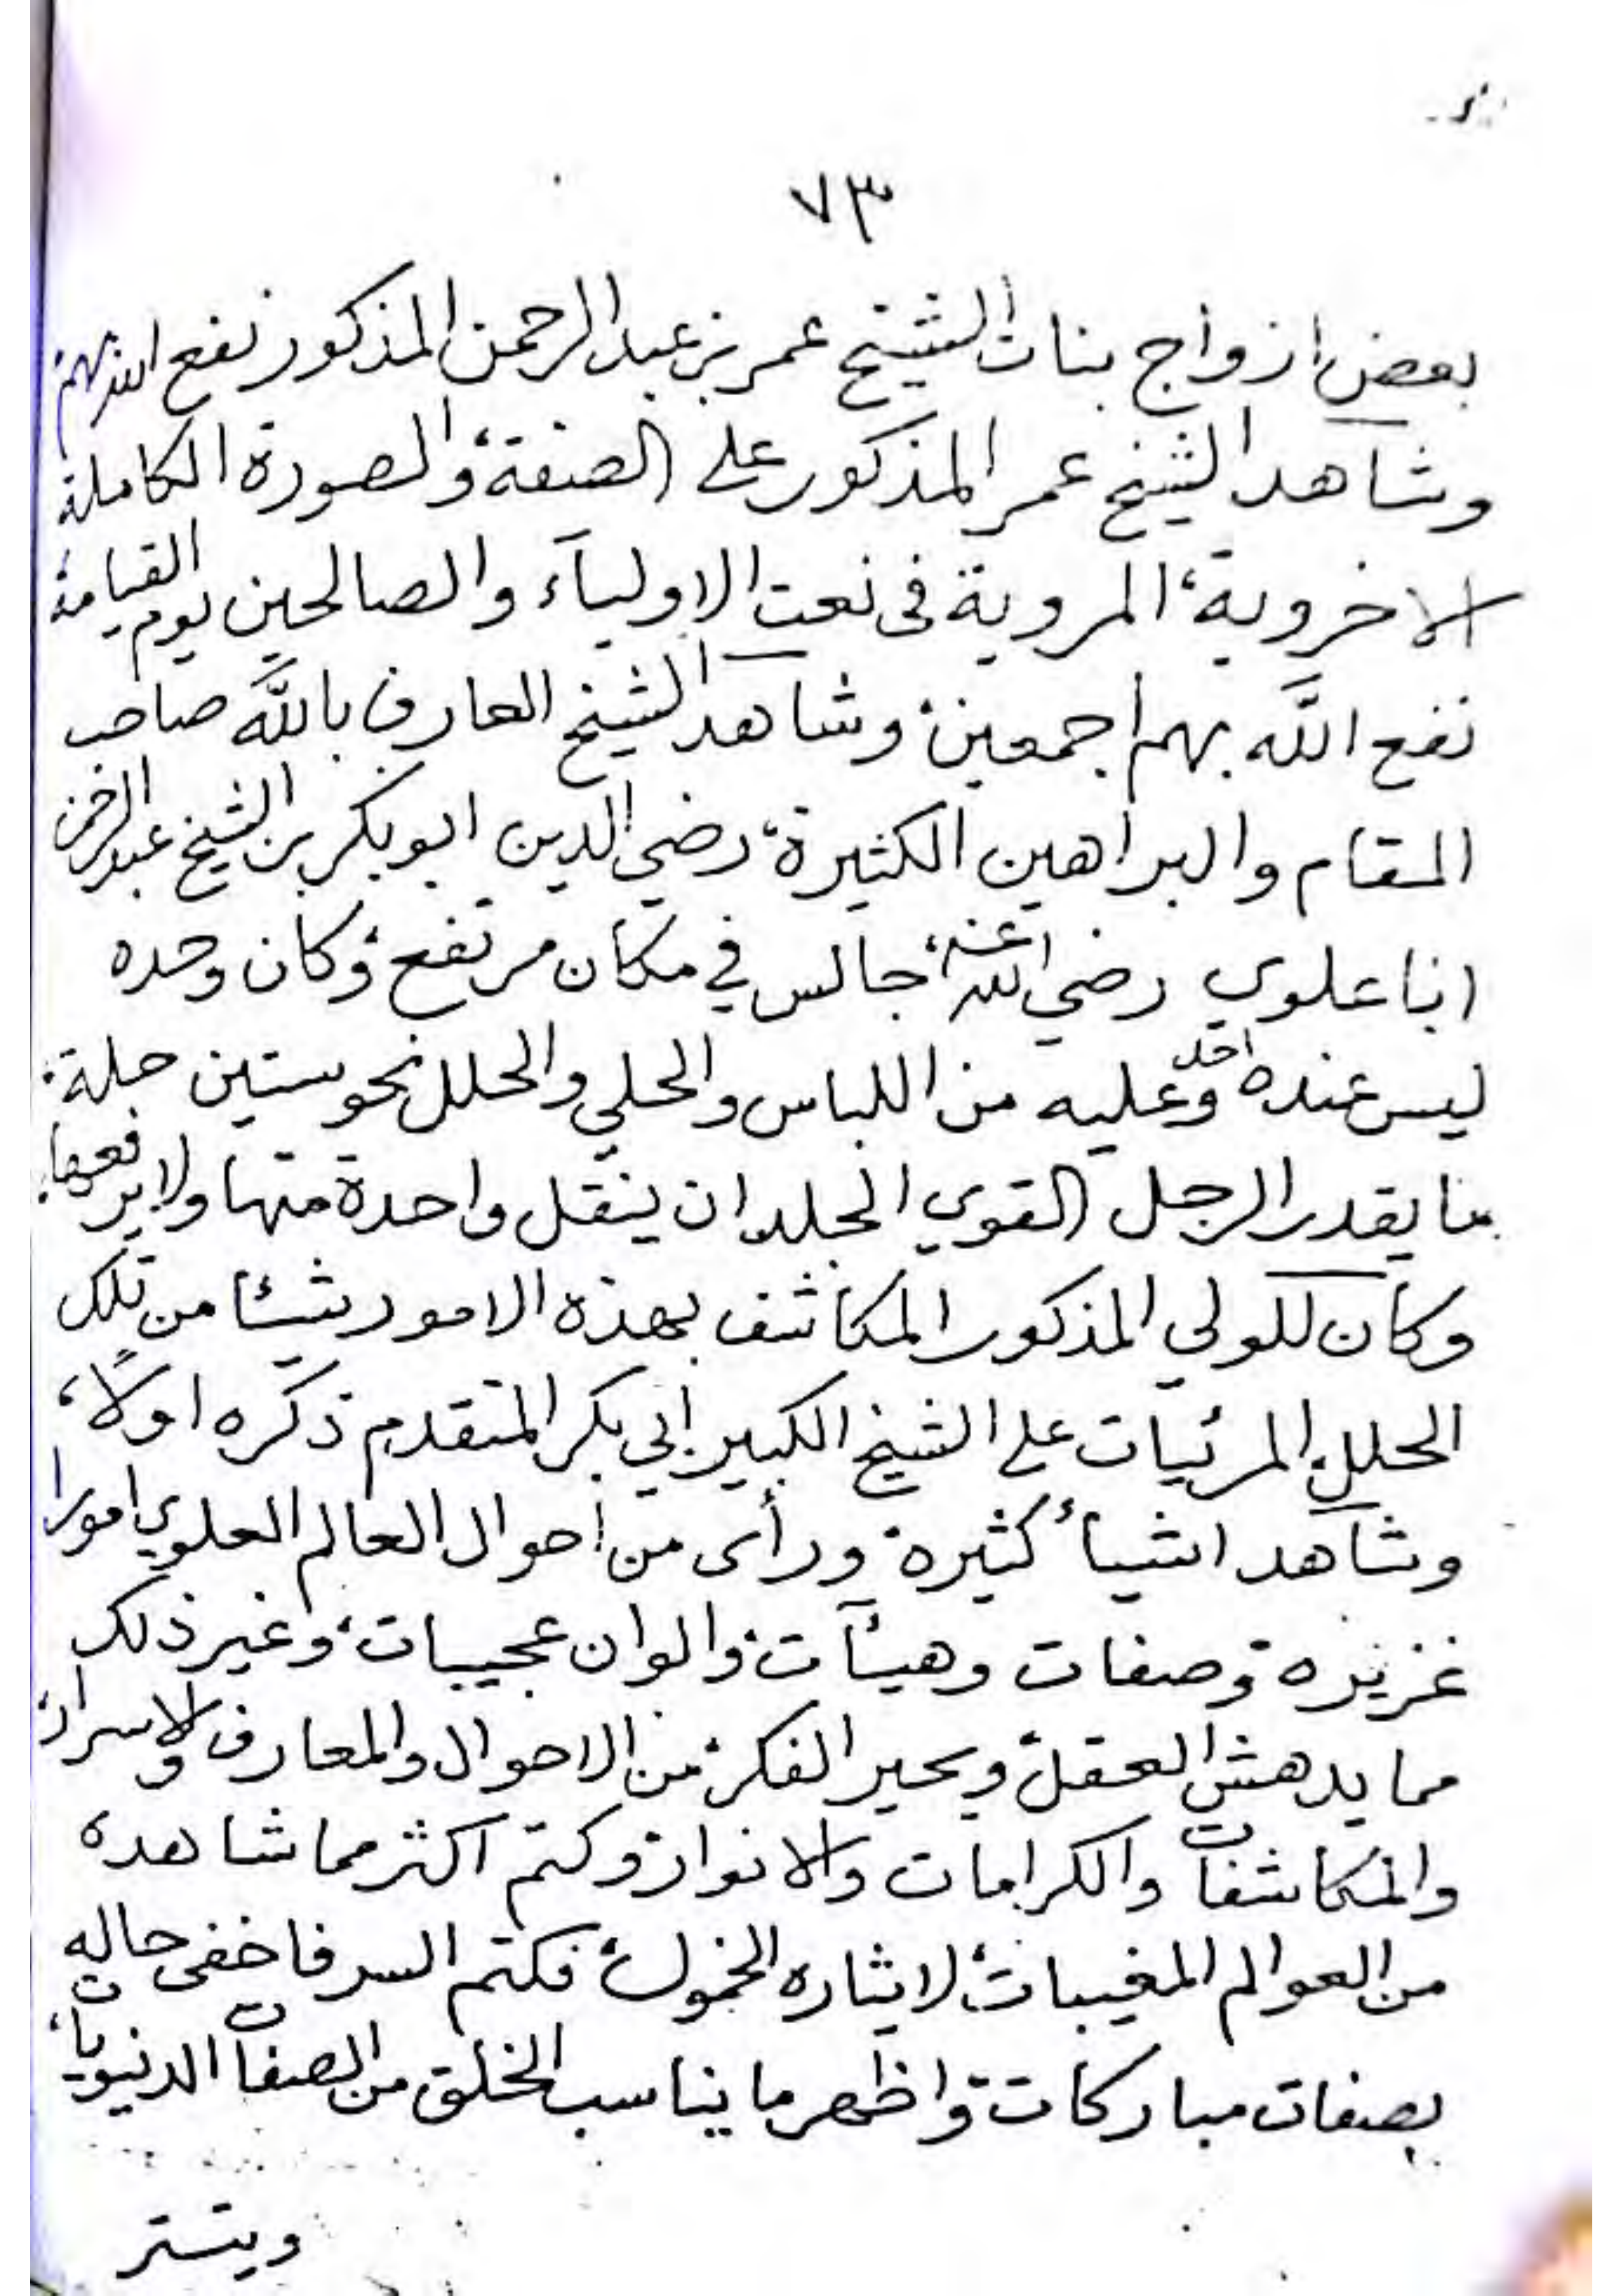 ٧٣
بعض ازواج بنات الشيخ عمر بن عبد الرحمن المذكور نفع الله بهم
وشاهد الشيخ عمر المذكور على الصفة، والصورة الكاملة
الاخروية، المروية فى نعت الاوليآء والصالحين يوم القيامة
نفع الله بهم اجمعين، وشاهد الشيخ العارف بالله صاحب
المقام والبراهين الكثيرة، رضي الدين ابو بكر بن الشيخ عبد الرحمن
ابا علوي رضي الله عنه، جالس في مكان مرتفع، وكان وحده
ليس عنده احد، وعليه من اللباس والحلي والحلل نحو ستين حلة،
ما يقدر الرجل القوي الجلد ان ينقل واحدة منها ولا يرفعها،
وكان للولي المذكور المكاشف بهذه الامور شيئا من تلك
الحلل، المرئيات على الشيخ الكبير ابي بكر المتقدم ذكره اولاً،
وشاهد اشياءً كثيرة، ورأى من احوال العالم العلوي امورا
غزيره، وصفات وهيئآت، والوان عجيبات، وغير ذلك
مما يدهش العقل، ويحير الفكر، من الاحوال والمعارف والاسرار،
والمكاشفات والكرامات والانوار، وكتم اكثر مما شاهده
من العوالم المغيبات، لايثاره الخمول، فكتم السر فاخفى حاله
بصفات مباركات، واظهر ما يناسب الخلق من الصفات الدنيويات،
ويتستر